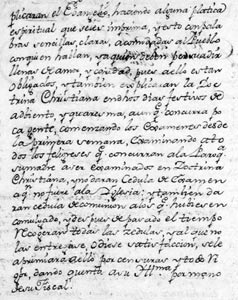 plicaran el Evangelio, haciendo alguna platica
espiritual que se les imprima, y esto con pala
bras sencillas, claras, acomodadas al Pueblo
con quien hablan, sa quien deben persuadir
llenas de ama, y caridad, pues a ello estan
obligados, y tambien explicaran la Doc
trina Christiana en dhos dias festivos de
adviento, y quaresma, aunq. concurra po
ca gente, comensando los examenes desde
la primera semana, Examinando a to
dos los feligreses q. concurran a la Parroq.
su madre a ser examinados en Doctrina
Christiana, no daran Cedula de Examen
a q. no fuere a la Yglesia; y tambien da
ran cedula de comunion a los q. hubiesen
comulgado, y despues de pasado el tiempo
Recogeran todas las zedulas, y al que no
las entregase, o diese satisfaccion, se le
apremiara a ello por censuras y todo
por, dando quenta a su Yllma. por mano
de su Fiscal.